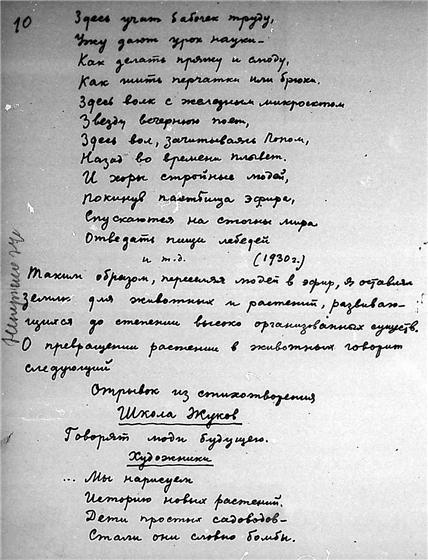 10
Здесь учат бабочек труду,
Ужу дают урок науки —
Как делать пряжу и слюду,
Как шить перчатки или брюки.
Здесь волк с железным микроскопом
Звезду вечернюю поет,
Здесь вол, зачитываясь Попом,
Назад во времени плывет.
И хоры стройные людей,
Покинув пастбища эфира,
Спускаются на стогны мира
Отведать пищи лебедей
и т.д. (1930 г.)
Таким образом, переселяя людей в эфир, я оставлял
Землю для животных и растений, развиваю-
щихся до степени высоко организованных существ.
О превращении растений в животных говорит
следующий
Отрывок из стихотворения
Школа Жуков
Говорят люди будущего.
Художники
... Мы нарисуем
Историю новых растений.
Дети простых садоводов —
Стали они словно бомбы.